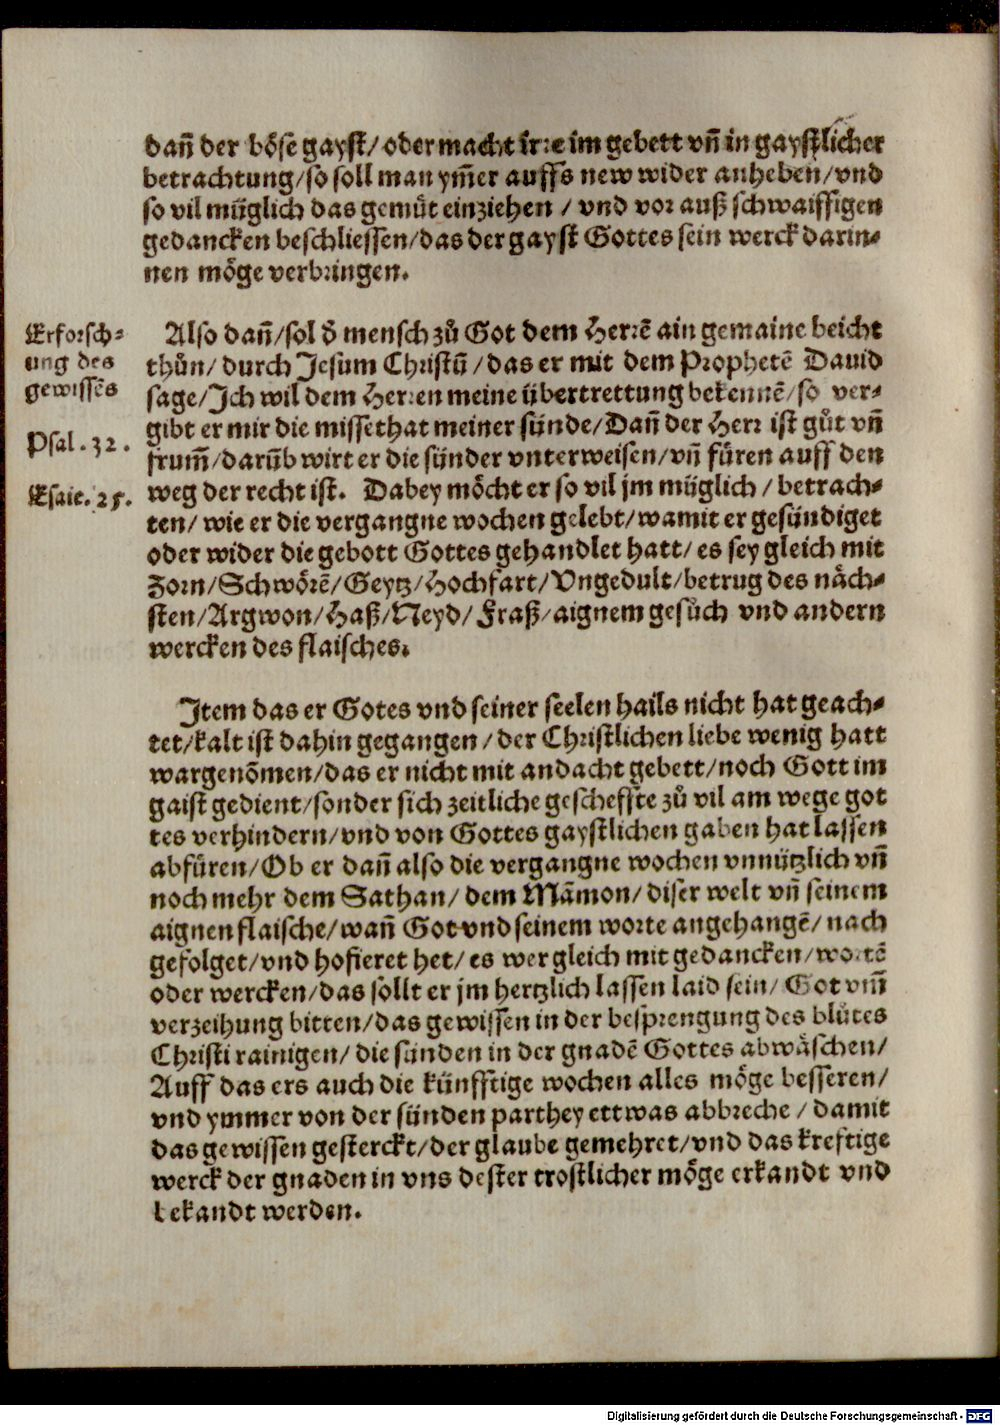 dañ der böse gayst/ oder macht irre im gebett vñ in gaystlicher
betrachtung/ so soll man ym̃er auffs new wider anheben/ vnd
so vil müglich das gemüt einziehen / vnd vor auß schwaiffigen
gedancken beschliessen/ das der gayst Gottes sein werck darin⸗
nen möge verbringen.
Erforsch⸗
ung des
gewissẽs
Also dañ/ sol d̓ mensch zů Got dem Herrẽ ain gemaine beicht
thůn/ durch Jesum Christũ / das er mit dem Prophetẽ Dauid
sage/ Ich wil dem Herren meine übertrettung bekennẽ/ so ver⸗
Psal. 32.
gibt er mir die missethat meiner sünde/ Dañ der Herr ist gůt vñ
frum̃/ darũb wirt er die sünder vnterweisen/ vñ füren auff den
Esaie. 25.
weg der recht ist. Dabey möcht er so vil jm müglich / betrach⸗
ten/ wie er die vergangne wochen gelebt/ wamit er gesündiget
oder wider die gebott Gottes gehandlet hatt/ es sey gleich mit
Zorn/ Schwörẽ/ Geytz/ Hochfart/ Vngedult/ betrug des näch⸗
sten/ Argwon/ Haß/ Neyd/ Fraß/ aignem gesůch vnd andern
wercken des flaisches.
Item das er Gotes vnd seiner seelen hails nicht hat geach⸗
tet/ kalt ist dahin gegangen / der Christlichen liebe wenig hatt
wargenõmen/ das er nicht mit andacht gebett/ noch Gott im
gaist gedient/ sonder sich zeitliche gescheffte zů vil am wege got
tes verhindern/ vnd von Gottes gaystlichen gaben hat lassen
abfüren/ Ob er dañ also die vergangne wochen vnnützlich vñ
noch mehr dem Sathan/ dem Mãmon/ diser welt vñ seinem
aignen flaische/ wañ Got vnd seinem worte angehangẽ/ nach
gefolget/ vnd hofieret het/ es wer gleich mit gedancken/ wortẽ
oder wercken/ das sollt er jm hertzlich lassen laid sein/ Got vm̃
verzeihung bitten/ das gewissen in der besprengung des blůtes
Christi rainigen/ die sünden in der gnadẽ Gottes abwäschen/
Auff das ers auch die künfftige wochen alles möge besseren/
vnd ymmer von der sünden parthey ettwas abbreche / damit
das gewissen gesterckt/ der glaube gemehret/ vnd das kreftige
werck der gnaden in vns dester trostlicher möge erkandt vnd
bekandt werden.
Digitalisierung gefördert durch die Deutsche Forschungsgemeinschaft - DFG